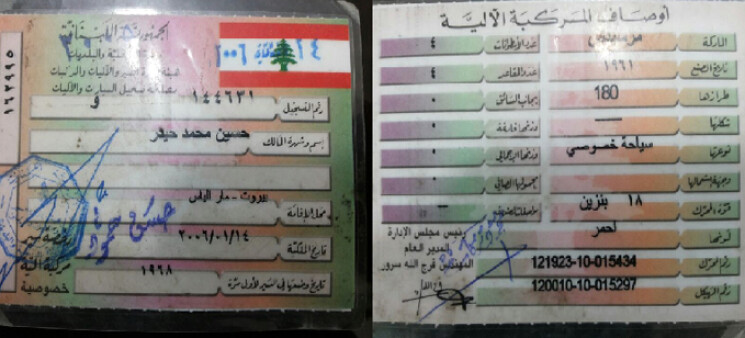 الجمهورية اللبنانية
١٦٢٩٩٥
هيئة إدارة السير والآليات والمركبات
مصلحة تسجيل السيارات والآليات
رقم التسجيل ١٤٤٦٣١ و
إسم وشهرة المالك حسين محمد حيدر
محل الإقامة بيروت - مار الياس
تاريخ الملكية ٢٠٠٦/٠١/١٤
تاريخ وضعها في السير لأول مرة ١٩٦٨
مركبة آلية
خصوصية
أوصاف المركبة الآلية
الماركة مرسيدس
عدد الأسطوانات ٤
تاريخ الصنع ١٩٦١
عدد المقاعد ٤
طرازها 180
بجانب السائق ٠
شكلها —
وزنها فارغة ٠
نوعها سياحة خصوصي
وزنها الإجمالي ٠
وجهة إستعمالها
محمولها الصافي ٠
قوة المحرك ١٨ بنزين
لونها احمر
رئيس مجلس الإدارة
المدير العام
المهندس فرج الله سرور
رقم المحرك 121923-10-015434
رقم الهيكل 120010-10-015297